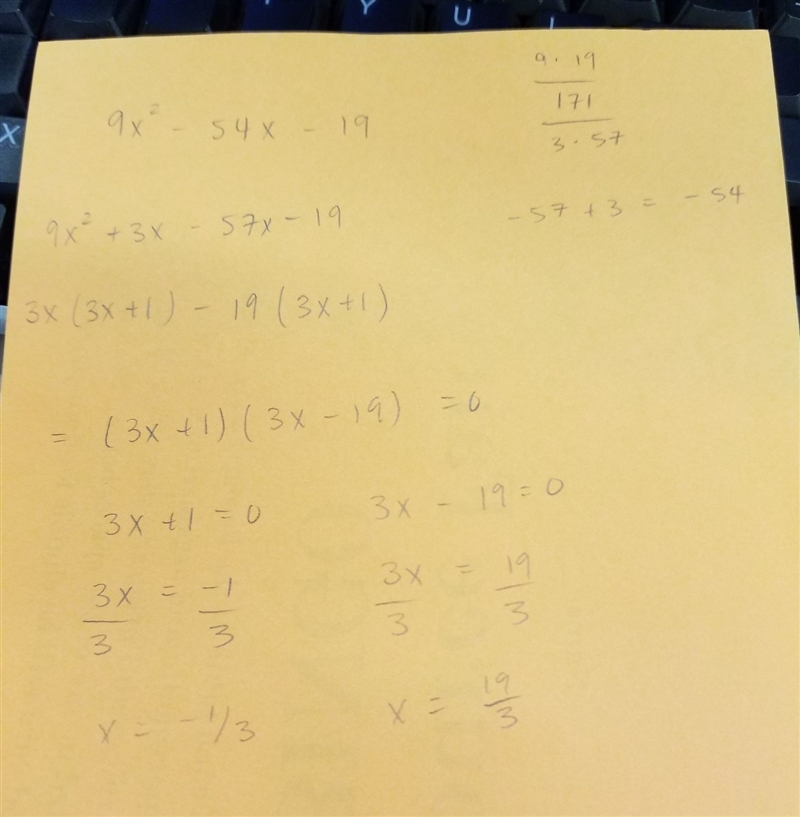 Y
U
X
9x² - 54x - 19
9 · 19
171
3 · 57
9x² + 3x - 57x - 19
-57 + 3 = -54
3x (3x+1) - 19 (3x+1)
= (3x+1) (3x - 19) = 0
3x + 1 = 0
3x - 19 = 0
3x/3 = -1/3
3x/3 = 19/3
x = -1/3
x = 19/3